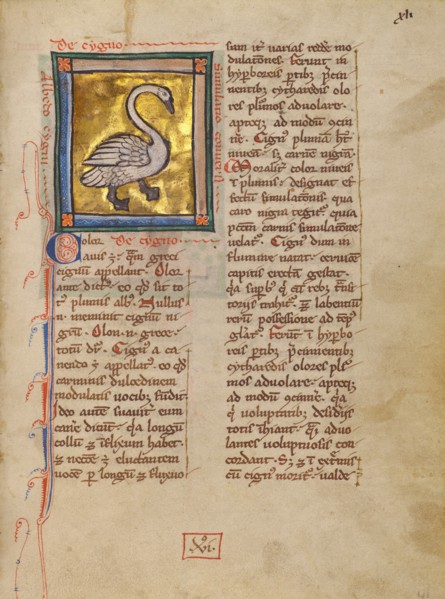 De cygno
Olor De cygno
auis ē quam greci
cignum appellant. Olor
aute dictus eo qd sit to
tus plumis albus. Nullus
n. meminit cignum ni
grum. Olon. n. grece.
totum dr. Cignus a ca
nendo ē appellatus eo qd
carminis dulcedinem
modulatis uocibus fundit.
Ideo autem suauiter eum
canere dicunt. quia longum
collum & inflexum habet.
& necesse ē eluctantem
uocem per longum & flexuo
sum iter uarias reddere mo
dulationes. ferunt in
hyperboreis partibus precin
nentibus cytharedis olo
res plurimos aduolare.
apteque ad modum concin
nere. Cignus plumam habet
niueam. sed carnem nigram.
Moraliter color niueus
in plumis. designat ef
fectum simulationis. qua
caro nigra tegitur. quia
peccatum carnis simulatione
uelatur. Cignus dum in
flumine natat. ceruice
capitis erecta gestat.
quia superbus qui cum rebus transi
toriis trahitur. & labentium
rerum possessione ad tempus
gloriatur. Ferunt in hyperbo
reis partibus precinentibus
cytharedis olores plu
rimos aduolare. apteque
ad modum concinere. quia
qui uoluptatibus desideriis
totis inhiant. quasi aduo
lantes uoluptuosis con
cordant. Sed & in extremis
cum cignus moritur. ualde
.XI.